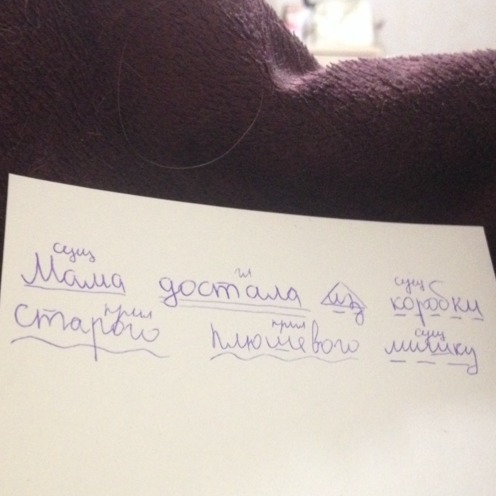 сущ гл сущ
Мама достала из коробки
прил прил сущ
старого плюшевого мишку